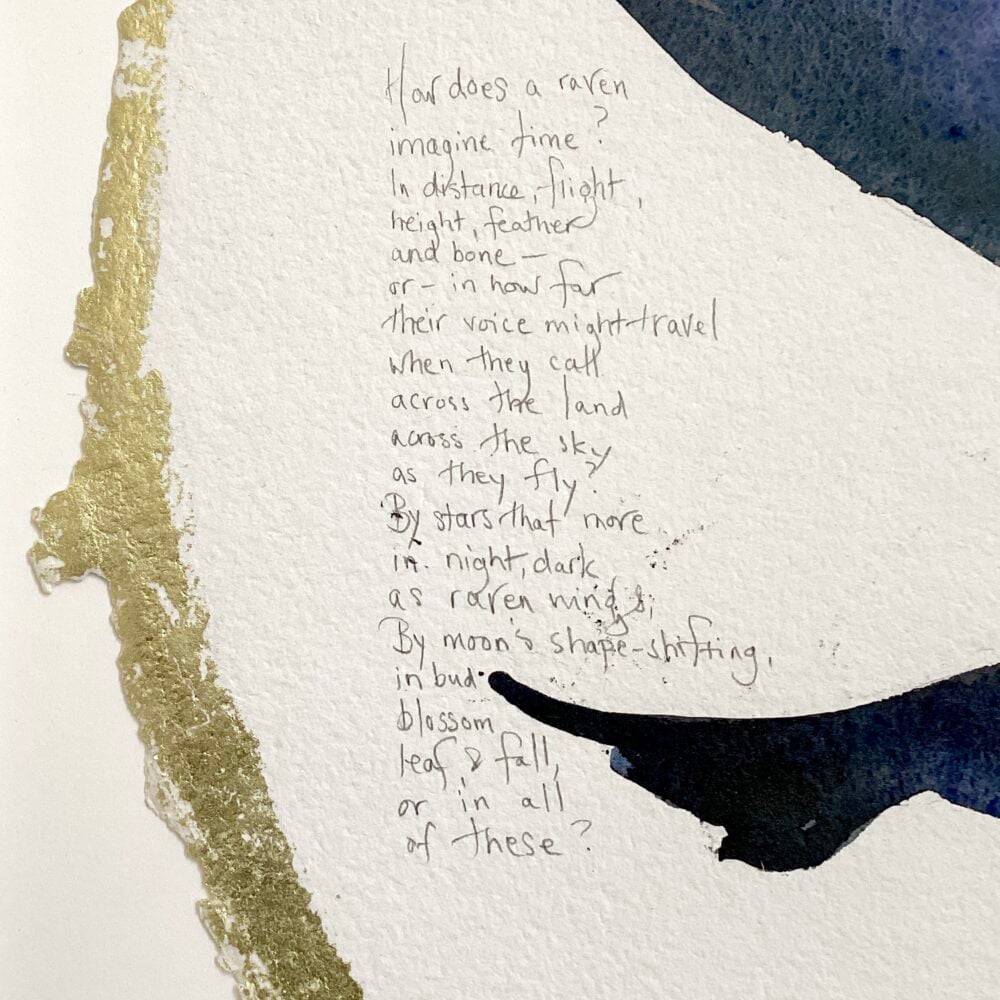 How does a raven
imagine time?
In distance, flight,
height, feather
and bone —
or – in how far
their voice might travel
when they call
across the land
across the sky
as they fly?
By stars that move
in night, dark
as raven wings,
By moon's shape-shifting,
in bud
blossom
leaf & fall,
or in all
of these?